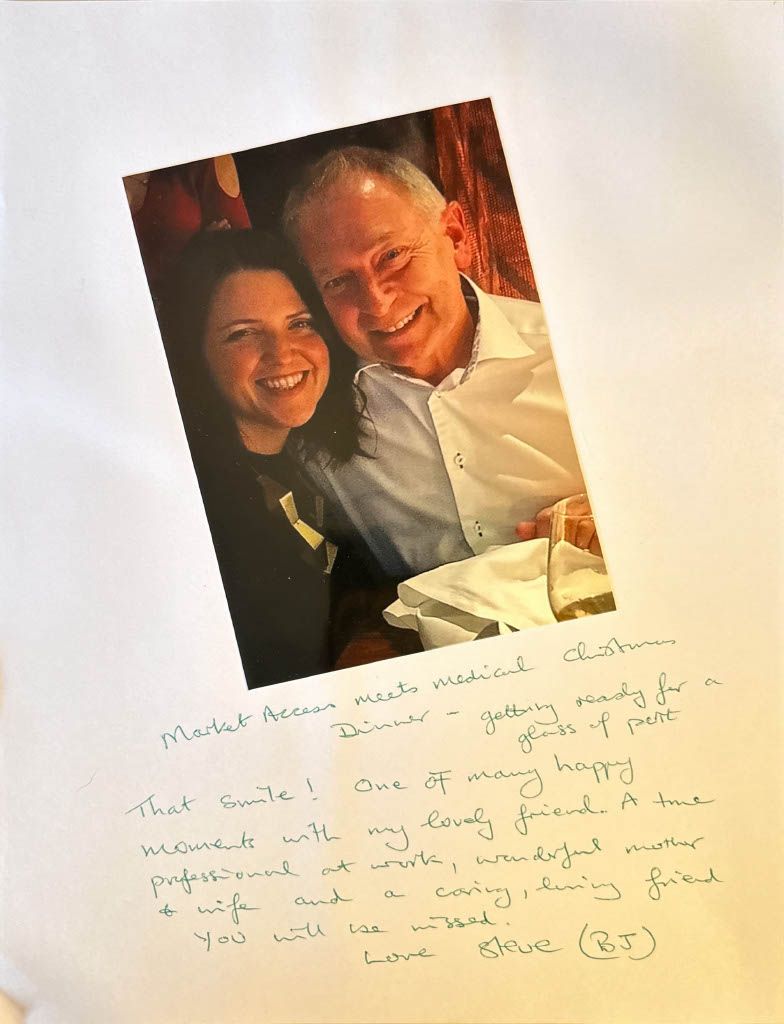 Market Access meets medical Christmas
Dinner - getting ready for a
glass of port
That smile! One of many happy
moments with my lovely friend. A true
professional at work, wonderful mother
& wife and a caring, loving friend
You will be missed.
Love Steve (BJ)